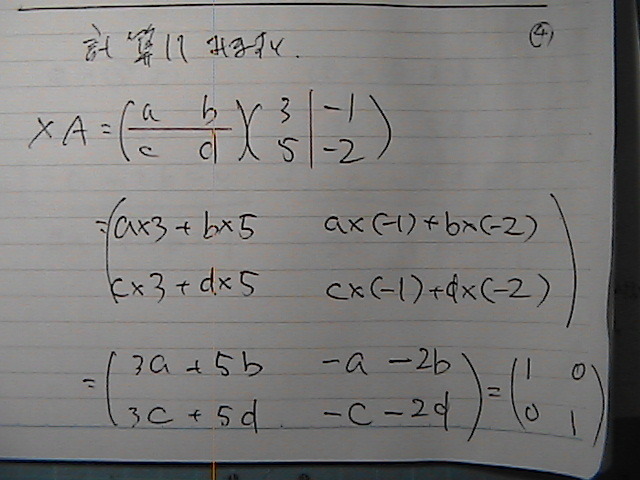 計算は ④
XA = (a b / c d)(3 -1 / 5 -2)
= (a×3 + b×5 a×(-1) + b×(-2)
c×3 + d×5 c×(-1) + d×(-2))
= (3a + 5b -a - 2b
3c + 5d -c - 2d) = (1 0 / 0 1)